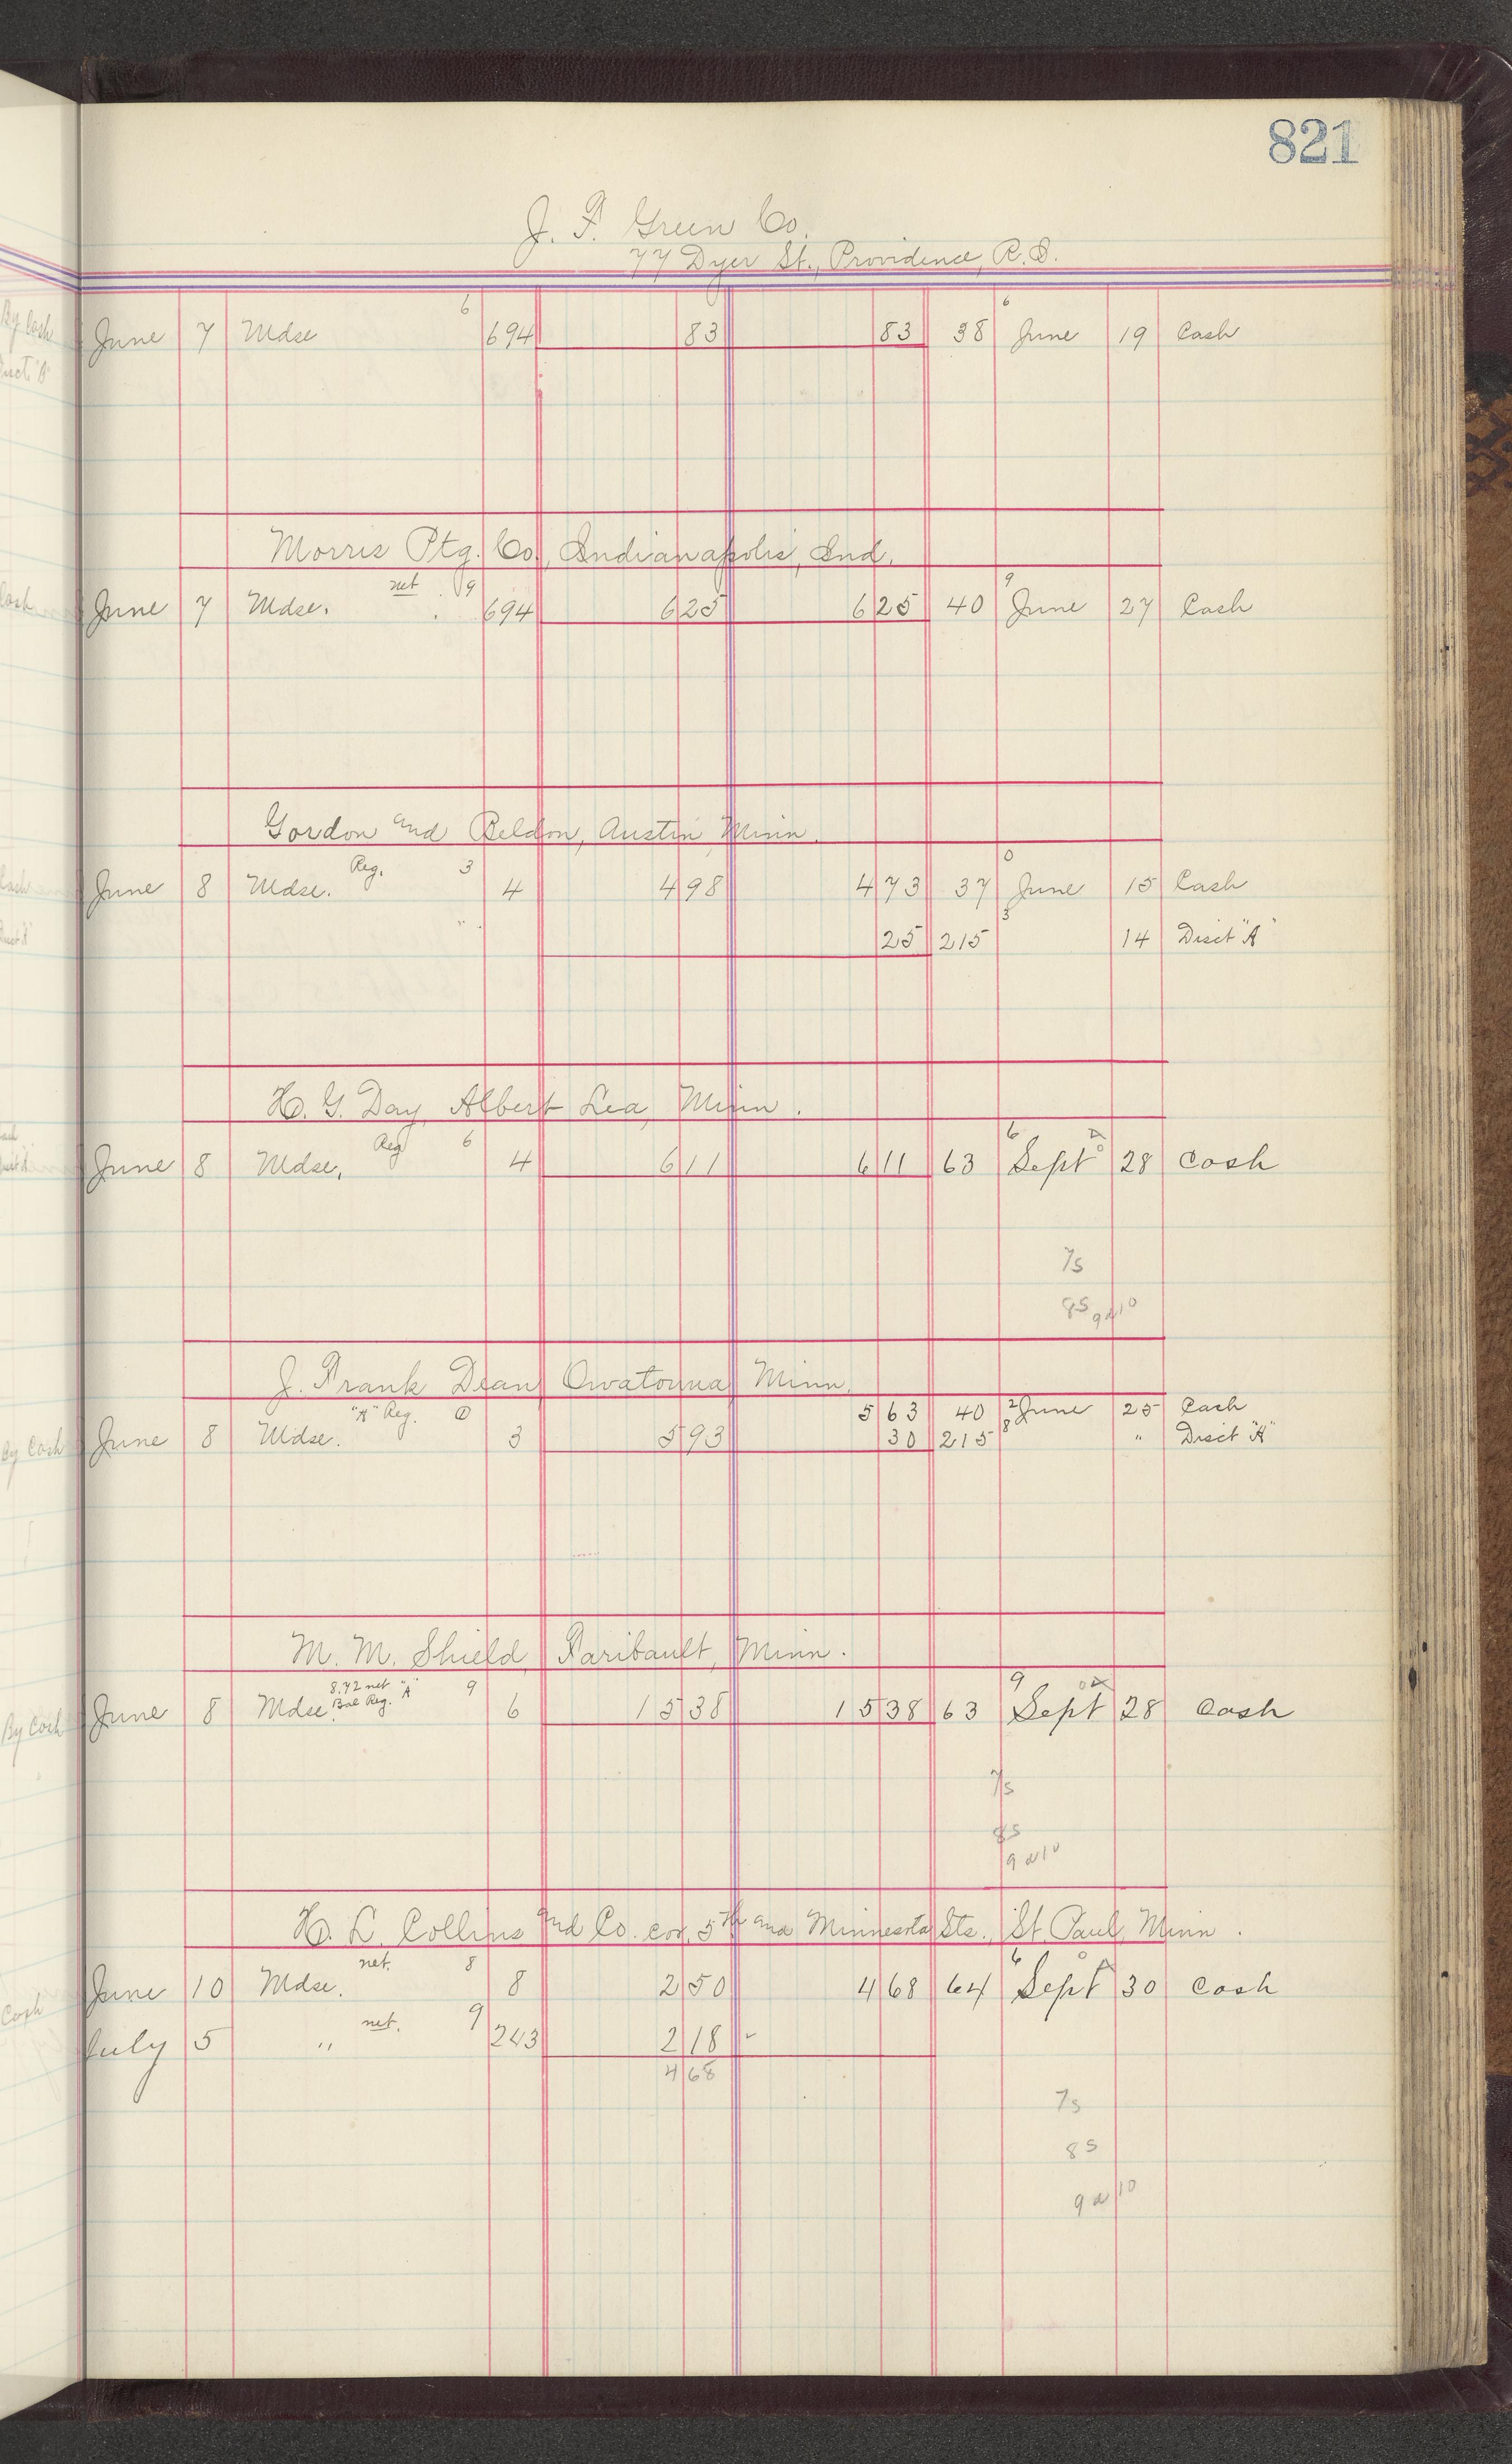 821
J. F. Green Co.
77 Dyer St., Providence, R.I.
6 6
June 7 Mdse 694 83 83 38 June 19 Cash
Morris Ptg. Co., Indianapolis, Ind.
net 9 9
June 7 Mdse. 694 6 25 6 25 40 June 27 Cash
Gordon and Beldon, Austin, Minn.
Reg. 3 0
June 8 Mdse. 4 4 98 4 73 37 June 15 Cash
3
25 215 14 Disct "A"
H. G. Day, Albert Lea, Minn.
Reg 6 6
June 8 Mdse. 4 6 11 6 11 63 Sept 28 Cash
7s
8s
9 10
J. Frank Dean Owatonna Minn.
"A" Reg. 5 63 40 2 June 25 Cash
June 8 Mdse. 3 5 93 30 215 8 " Disct "A"
M. M. Shield, Faribault, Minn.
8.42 net "A" 9 9
Bal Reg.
June 8 Mdse. 6 15 38 15 38 63 Sept 28 Cash
7s
8s
9 10
H. L. Collins and Co. cor. 5th and Minnesota Sts., St. Paul, Minn.
net. 8 6
June 10 Mdse. 8 2 50 4 68 64 Sept 30 Cash
net. 9
July 5 " 243 2 18
4 68
7s
8s
9 10
By Cash
Disct "B"
Cash
Cash
By Cash
By Cash
Cash